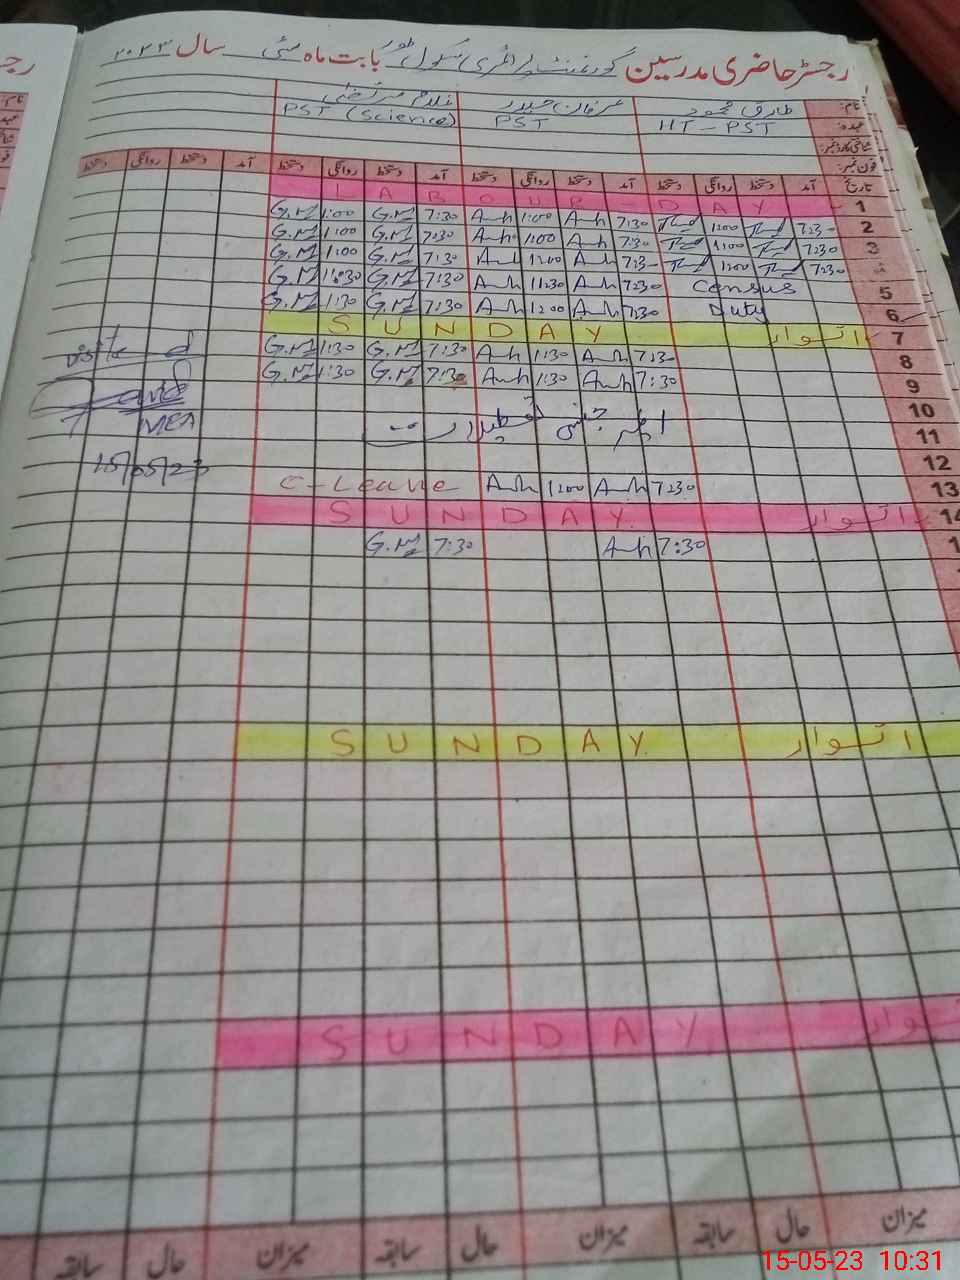 رجسٹر حاضری مدرسین گورنمنٹ پرائمری سکول بابت ماہ مئی سال ۲۰۲۳
نام: طارق محمود عرفان حیدر غلام مرتضیٰ
عہدہ: HT-PST PST PST (Science)
شناختی کارڈ نمبر:
فون نمبر:
تاریخ آمد دستخط روانگی دستخط آمد دستخط روانگی دستخط آمد دستخط روانگی دستخط آمد دستخط روانگی دستخط
1 LABOUR-DAY
G.M 1:00 G.M 7:30 Anh 1:00 Anh 7:30 1:00 7:30 2
G.M 1:00 G.M 7:30 Anh 1:00 Anh 7:30 1:00 7:30 3
G.M 1:00 G.M 7:30 Anh 1200 Anh 7:30 1200 7:30
G.M G.M 7:30 Anh 11:30 Anh 7:30 Census 5
G.M 1:30 G.M 7:30 Anh 1200 Anh 7:30 Duty 6
SUNDAY اتوار 7
G.M 1:30 G.M 7:30 Anh 1:30 Anh 7:30 8
G.M 1:30 G.M 7:30 Anh 1:30 Anh 7:30 9
10
11
12
C-Leave Anh 1200 Anh 7:30 13
SUNDAY اتوار 14
G.M 7:30 Anh 7:30
visited
MEA
15/05/23
SUNDAY اتوار
SUNDAY اتوار
میزان حال سابقہ میزان حال سابقہ میزان حال سابقہ
15-05-23 10:31